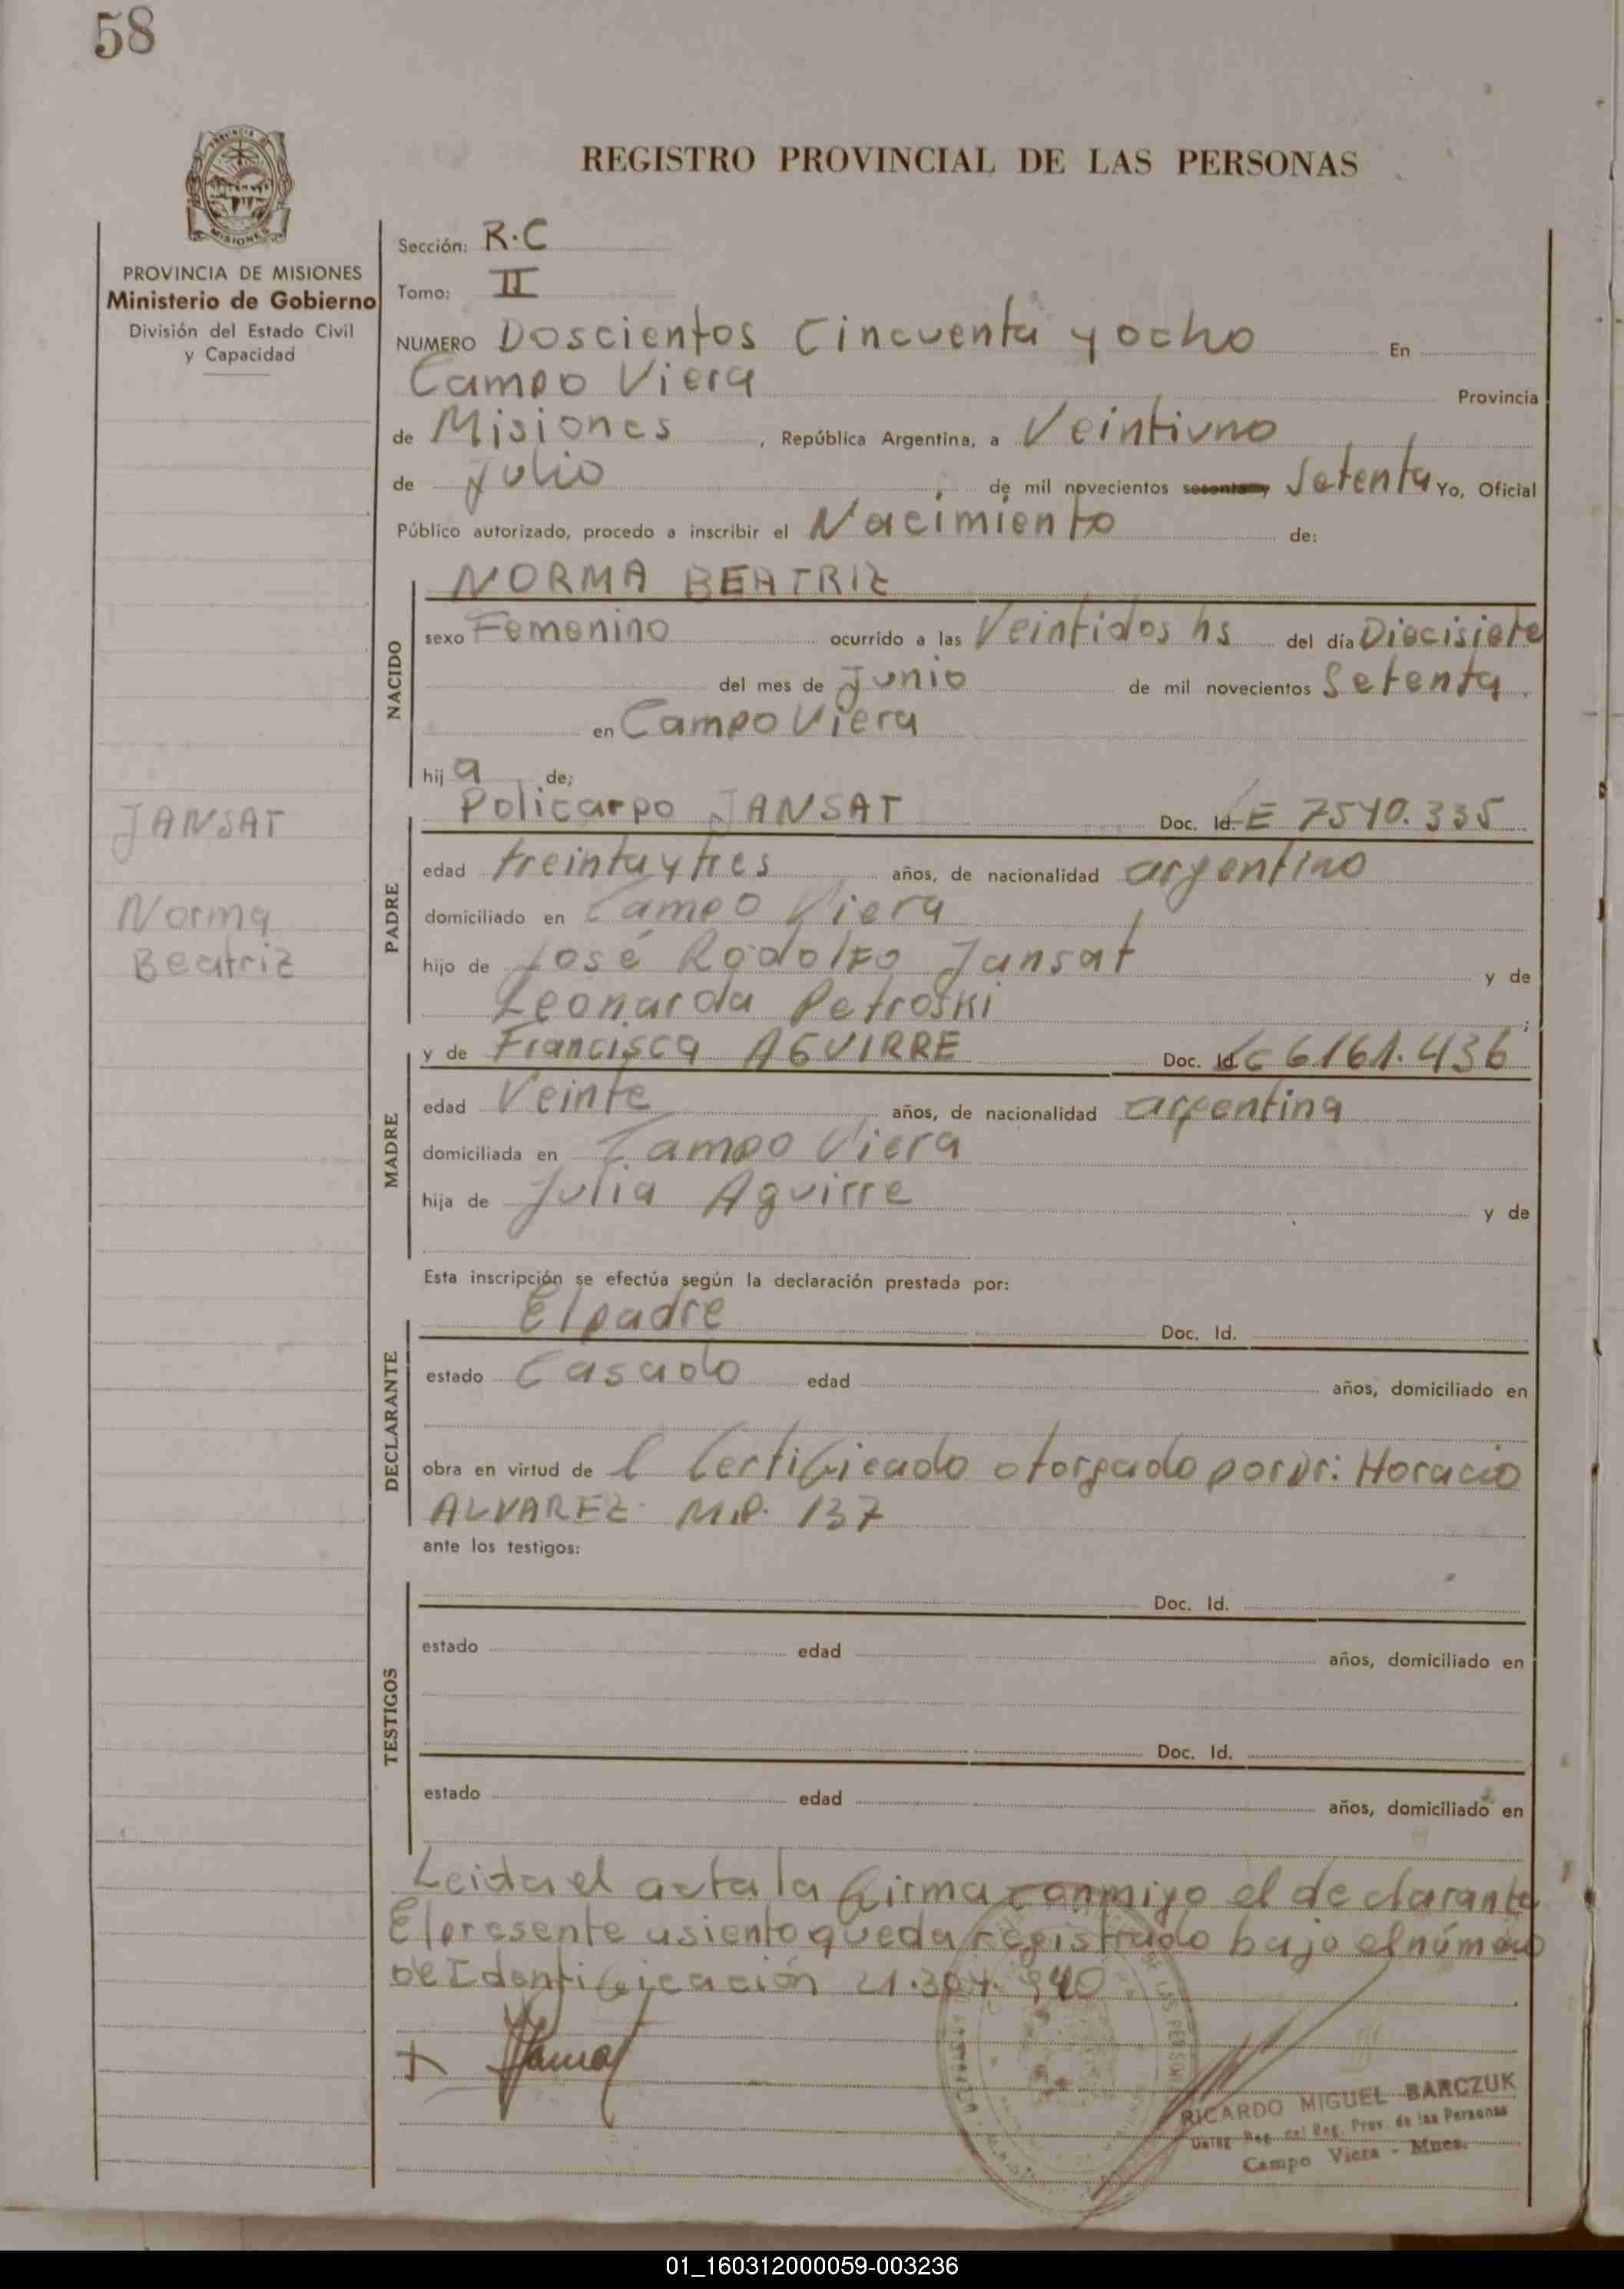 58
REGISTRO PROVINCIAL DE LAS PERSONAS
PROVINCIA DE MISIONES
Ministerio de Gobierno
División del Estado Civil
y Capacidad
Sección: R.C
Tomo: II
NUMERO Doscientos Cincuenta y ocho En
Campo Viera Provincia
de Misiones, República Argentina, a Veintiuno
de Julio de mil novecientos Setenta Yo, Oficial
Público autorizado, procedo a inscribir el Nacimiento de:
NACIDO
NORMA BEATRIZ
sexo Femenino ocurrido a las Veintidos hs del día Diecisiete
del mes de Junio de mil novecientos Setenta.
en Campo Viera
hij a de;
JANSAT
Norma
Beatriz
PADRE
Policarpo JANSAT Doc. Id. LE 7540.335
edad treinta y tres años, de nacionalidad argentino
domiciliado en Campo Viera
hijo de José Rodolfo Jansat y de
Leonarda Petroski;
MADRE
y de Francisca AGUIRRE Doc. Id. LC 6161.436
edad Veinte años, de nacionalidad argentina
domiciliada en Campo Viera
hija de Julia Aguirre y de
Esta inscripción se efectúa según la declaración prestada por:
DECLARANTE
El padre Doc. Id.
estado Casado edad años, domiciliado en
obra en virtud de l Certificado otorgado por Dr: Horacio
ALVAREZ M.P. 137
ante los testigos:
TESTIGOS
Doc. Id.
estado edad años, domiciliado en
Doc. Id.
estado edad años, domiciliado en
Leida el acta la firma conmigo el declarante
El presente asiento queda registrado bajo el número
de Identificación 21.304.940
RICARDO MIGUEL BARCZUK
Reg. del Reg. Prov. de las Personas
Campo Viera - Mnes.
01_160312000059-003236